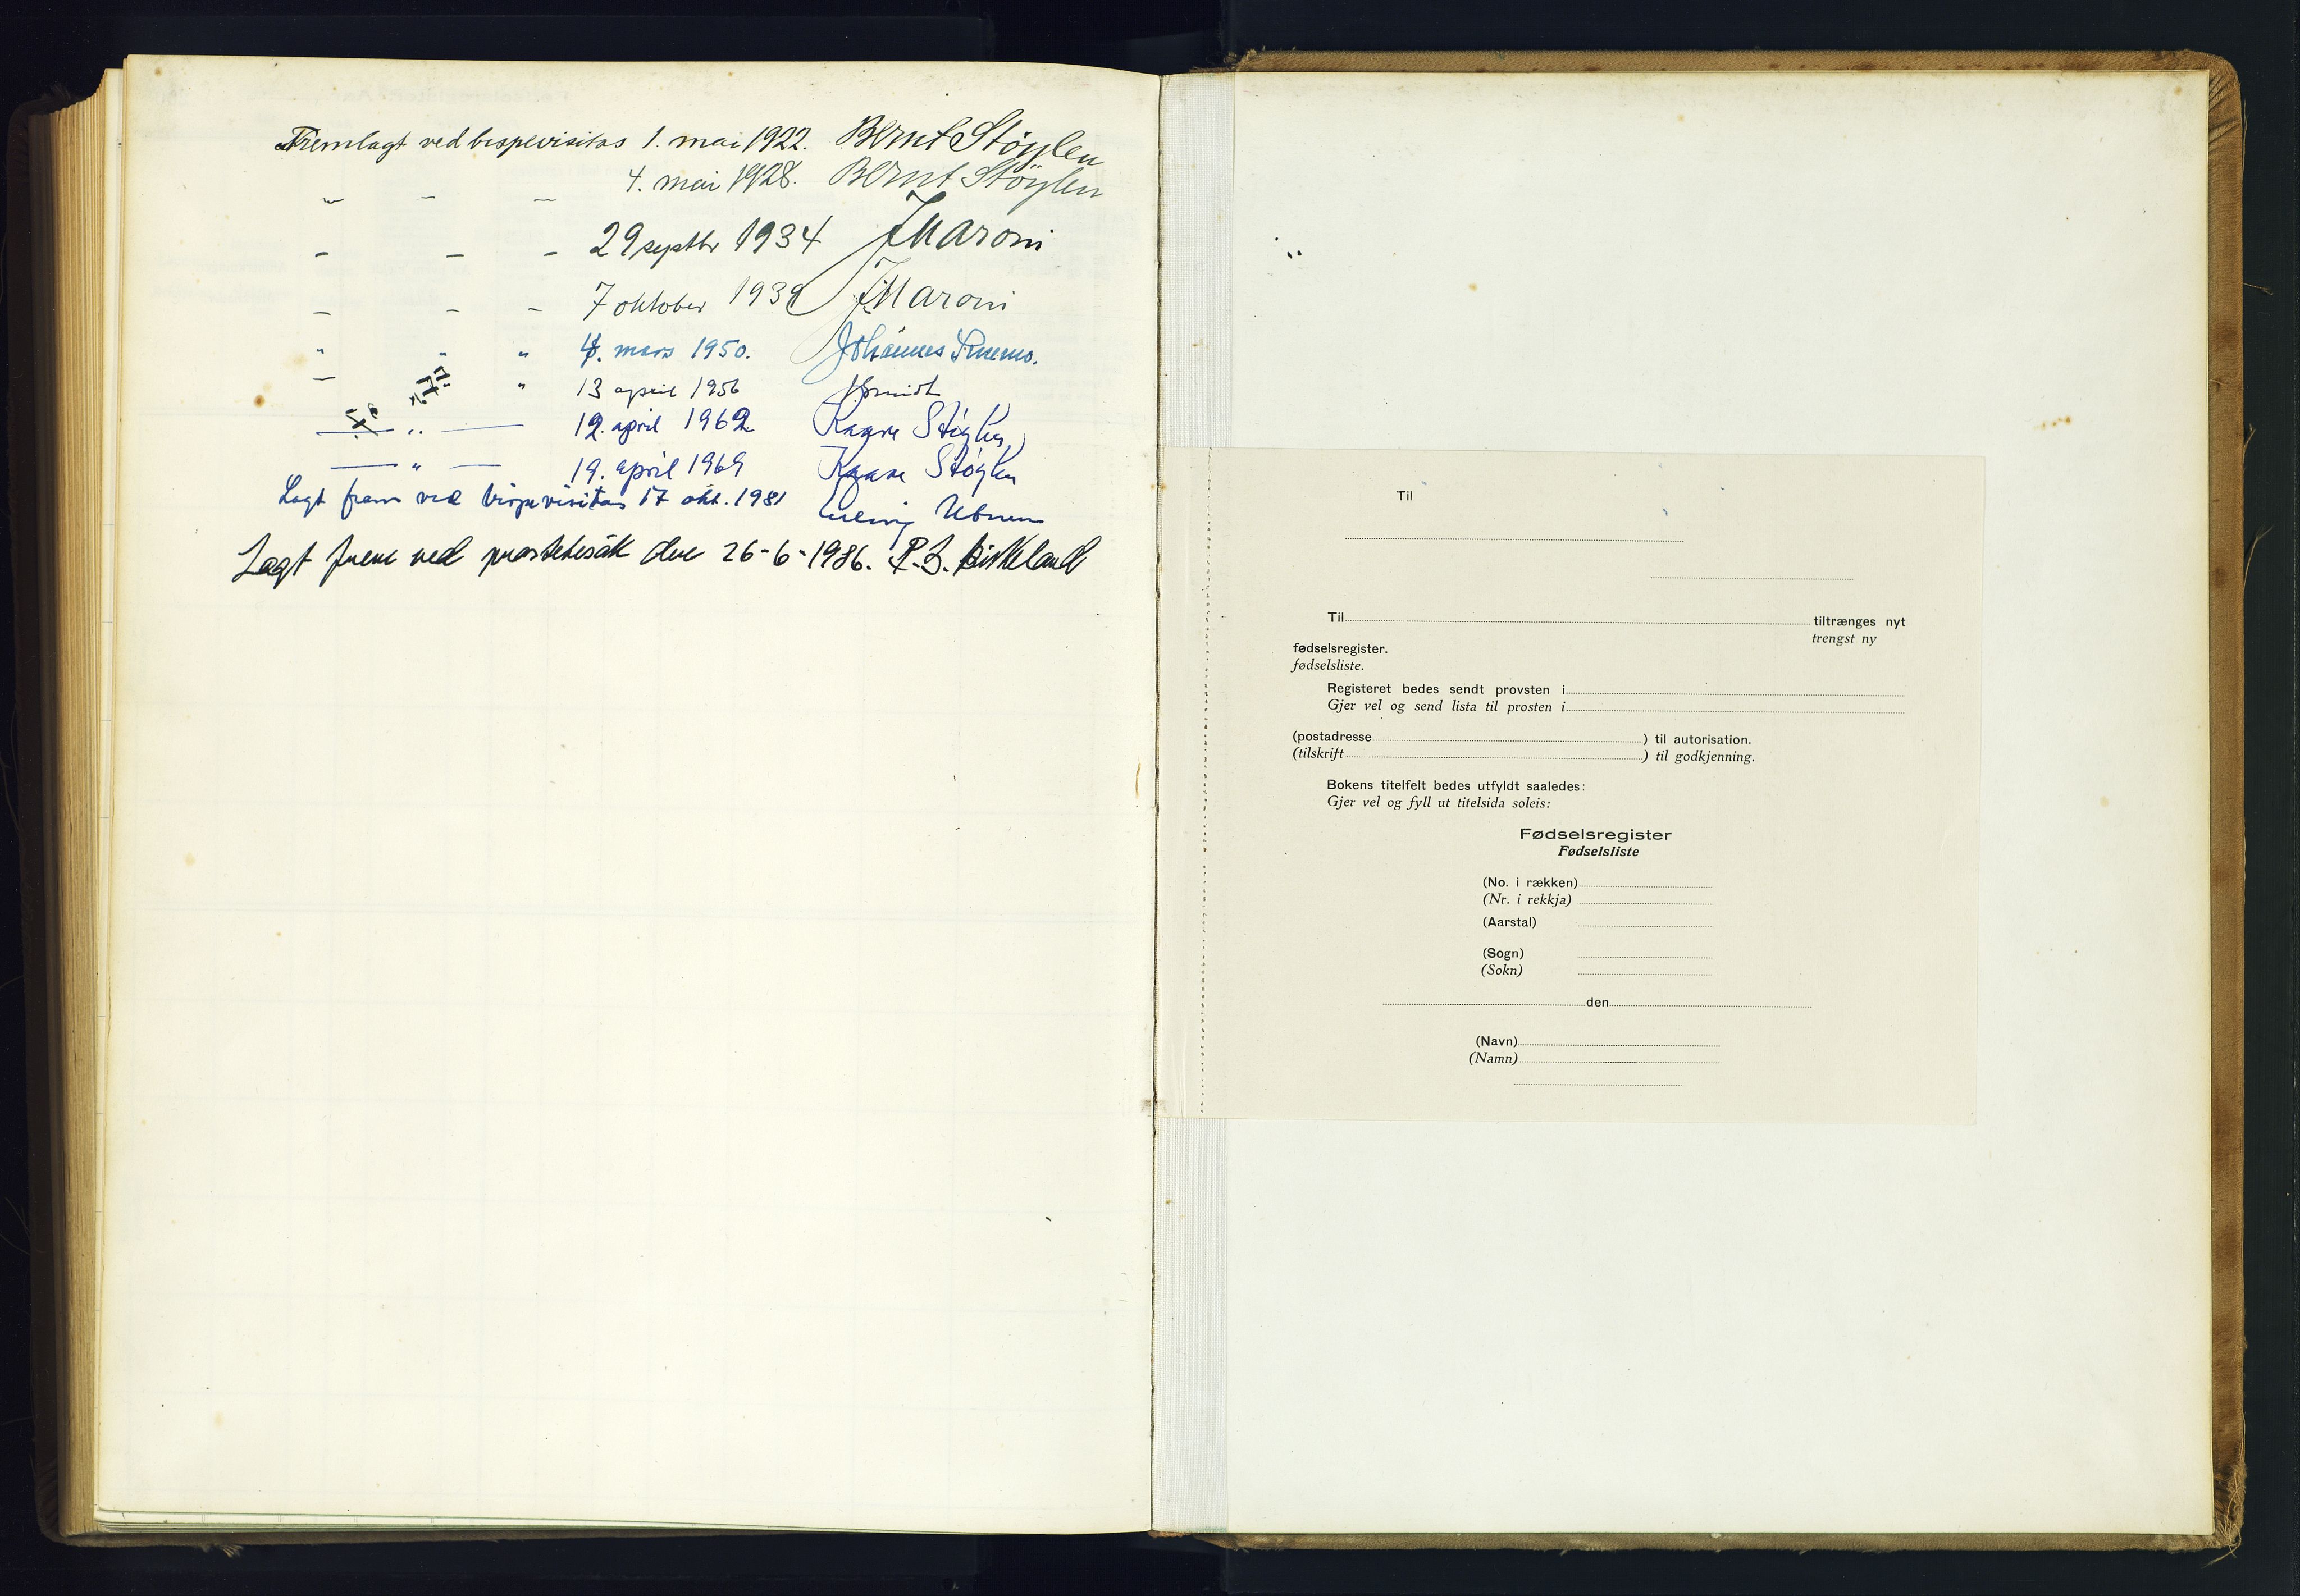 Fremlagt ved bispevisitas 1. mai 1922. Bernt Støylen
„ – – 4. mai 1928. Bernt Støylen
– – – 29 septbr 1934 J Maroni
– – – 7 oktober 1939 J Maroni
„ „ „ mars 1950. Johannes Smemo.
– „ „ 13 april 1956 J Smidt
— „ — 12. april 1962 Kaare Støylen
— „ — 19. april 1969 Kaare Støylen
Lagt fram ved bispevisitas 17 okt. 1981
Lagt frem ved prostebesøk den 26-6-1986. P.S. Birkeland
Til
Til tiltrænges nyt
trengst ny
fødselsregister.
fødselsliste.
Registeret bedes sendt provsten i
Gjer vel og send lista til prosten i
(postadresse ) til autorisation.
(tilskrift ) til godkjenning.
Bokens titelfelt bedes utfyldt saaledes:
Gjer vel og fyll ut titelsida soleis:
Fødselsregister
Fødselsliste
(No. i rækken)
(Nr. i rekkja)
(Aarstal)
(Sogn)
(Sokn)
den
(Navn)
(Namn)